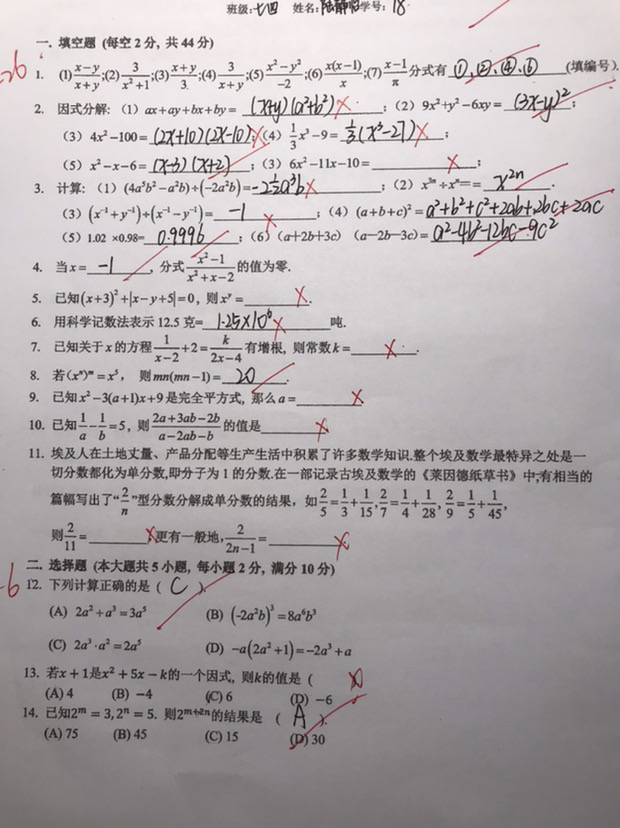 班级:七四 姓名: 学号:18
-26
一. 填空题 (每空 2 分, 共 44 分)
1. (1) x−y/x+y ;(2) 3/x²+1 ;(3) x+y/3 ;(4) 3/x+y ;(5) x²−y²/−2 ;(6) x(x−1)/x ;(7) x−1/π 分式有 ①,②,④,⑥ (填编号).
2. 因式分解: (1) ax+ay+bx+by= (x+y)(a²+b²) ; (2) 9x²+y²−6xy= (3x-y)² ;
(3) 4x²−100= (2x+10)(2x-10) ;(4) 1/3 x³−9= 1/3(x³-27) ;
(5) x²−x−6= (x-3)(x+2) ; (3) 6x²−11x−10= ;
3. 计算: (1) (4a³b²−a²b)÷(−2a²b)= -2½a³b ; (2) x³ⁿ÷xⁿ= x²ⁿ .
(3) (x⁻¹+y⁻¹)÷(x⁻¹−y⁻¹)= -1 ; (4) (a+b+c)²= a²+b²+c²+2ab+2bc+2ac
(5) 1.02 ×0.98= 0.9996 ; (6) (a+2b+3c) (a−2b−3c)= a²-4b²-12bc-9c²
4. 当x= -1 , 分式 x²−1/x²+x−2 的值为零.
5. 已知(x+3)²+|x−y+5|=0, 则 xʸ= .
6. 用科学记数法表示 12.5 克= 1.25×10⁶ 吨.
7. 已知关于 x 的方程 1/x−2 +2= k/2x−4 有增根, 则常数 k= .
8. 若(xⁿ)ᵐ=x⁵, 则 mn(mn−1)= 20 .
9. 已知 x²−3(a+1)x+9 是完全平方式, 那么 a=
10. 已知 1/a − 1/b =5, 则 2a+3ab−2b/a−2ab−b 的值是 .
11. 埃及人在土地丈量、产品分配等生产生活中积累了许多数学知识.整个埃及数学最特异之处是一
切分数都化为单分数,即分子为 1 的分数.在一部记录古埃及数学的《莱因德纸草书》中,有相当的
篇幅写出了“2/n”型分数分解成单分数的结果, 如 2/5=1/3+1/15, 2/7=1/4+1/28, 2/9=1/5+1/45,
则 2/11= ,更有一般地, 2/2n−1= .
-6
二. 选择题 (本大题共 5 小题, 每小题 2 分, 满分 10 分)
12. 下列计算正确的是 ( C ).
(A) 2a²+a³=3a⁵ (B) (−2a²b)³=8a⁶b³
(C) 2a³·a²=2a⁵ (D) −a(2a²+1)=−2a³+a
13. 若x + 1是x² + 5x − k的一个因式, 则k的值是 (
(A) 4 (B) −4 (C) 6 (D) −6
14. 已知2ᵐ = 3, 2ⁿ = 5. 则2ᵐ⁺²ⁿ的结果是 ( A ).
(A) 75 (B) 45 (C) 15 (D) 30